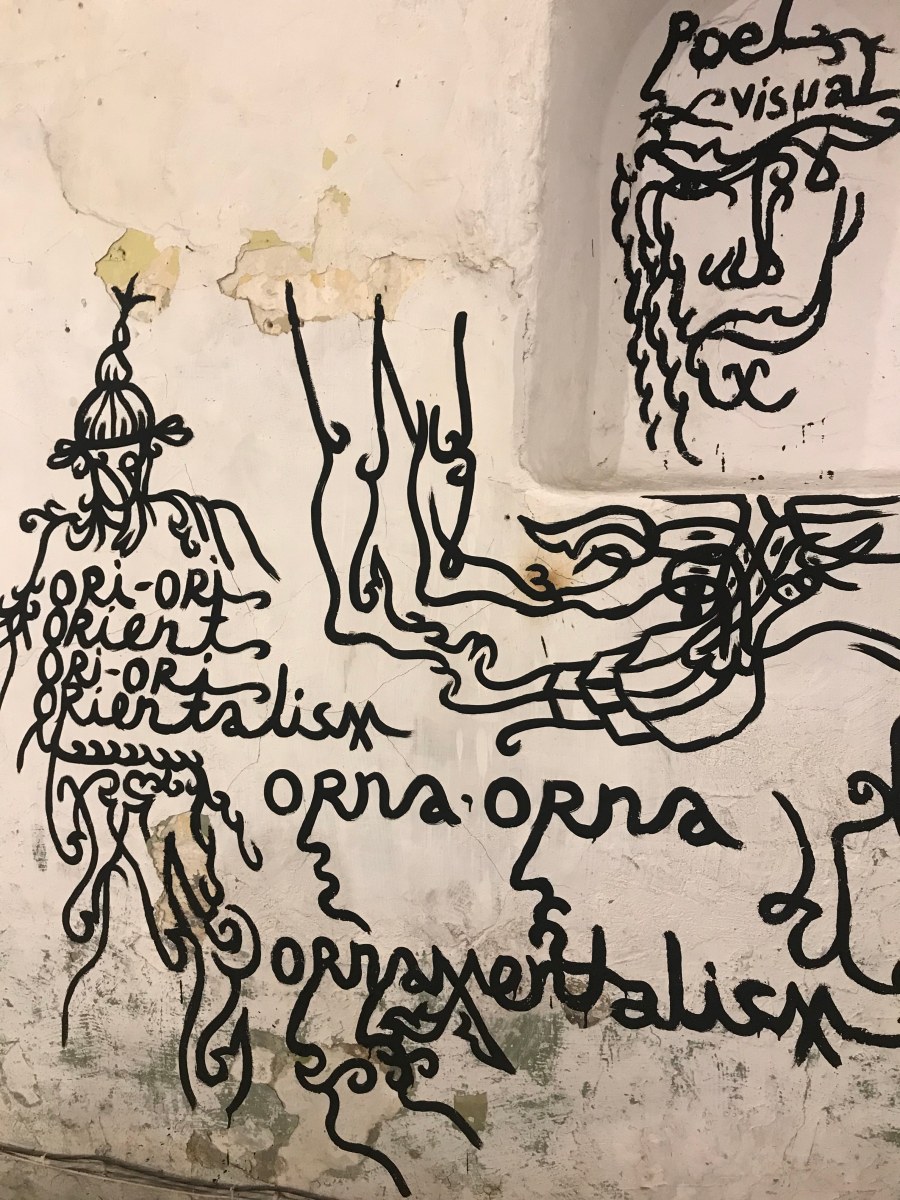 Poet
visual
ORi-ORi
ORient
ORi-ORi
ORientalism
ORna-ORna
ORnamentalism